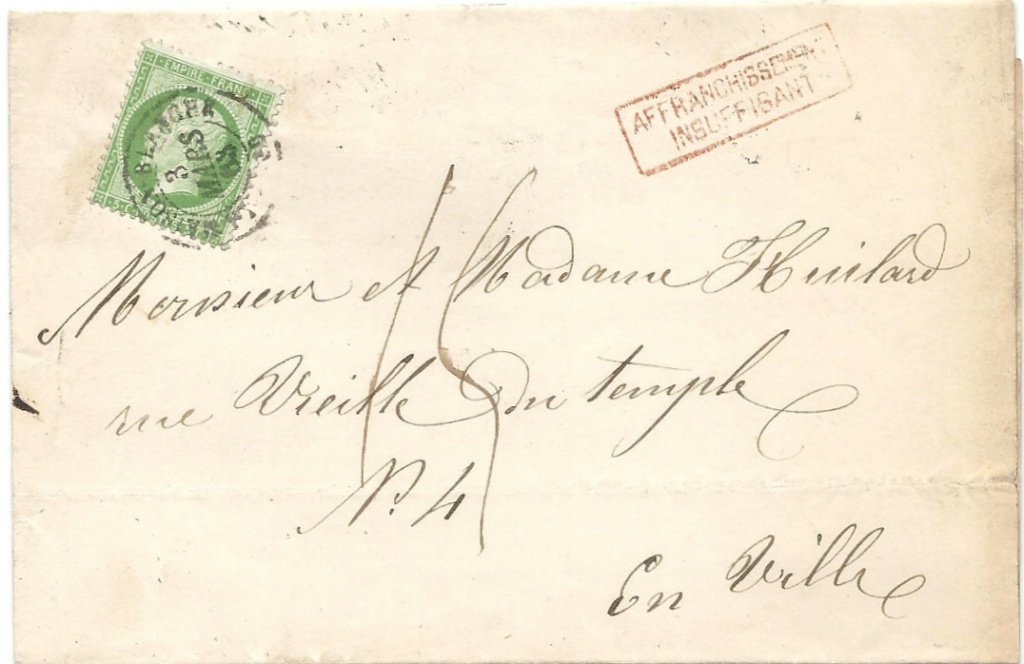 EMPIRE FRANC
3
MARS
63
AFFRANCHISSEMENT
INSUFFISANT
15
Monsieur et Madame Huilard
rue Vieille du temple
N°. 4
En Ville